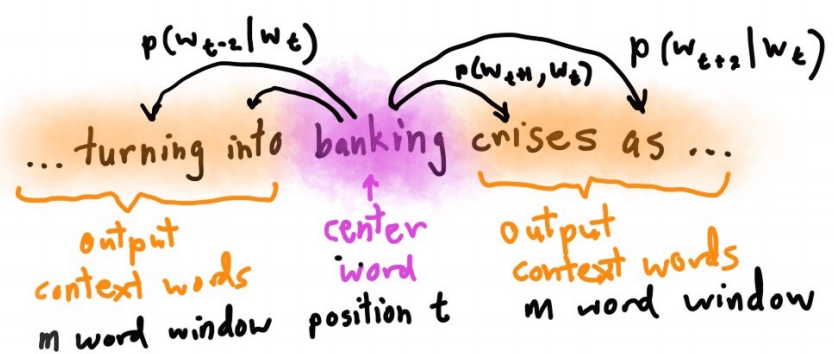 p(w_{t-2}|w_t) p(w_{t+1}, w_t) p(w_{t+2}|w_t)
... turning into banking crises as ...
output context words
m word window
center word
position t
output context words
m word window